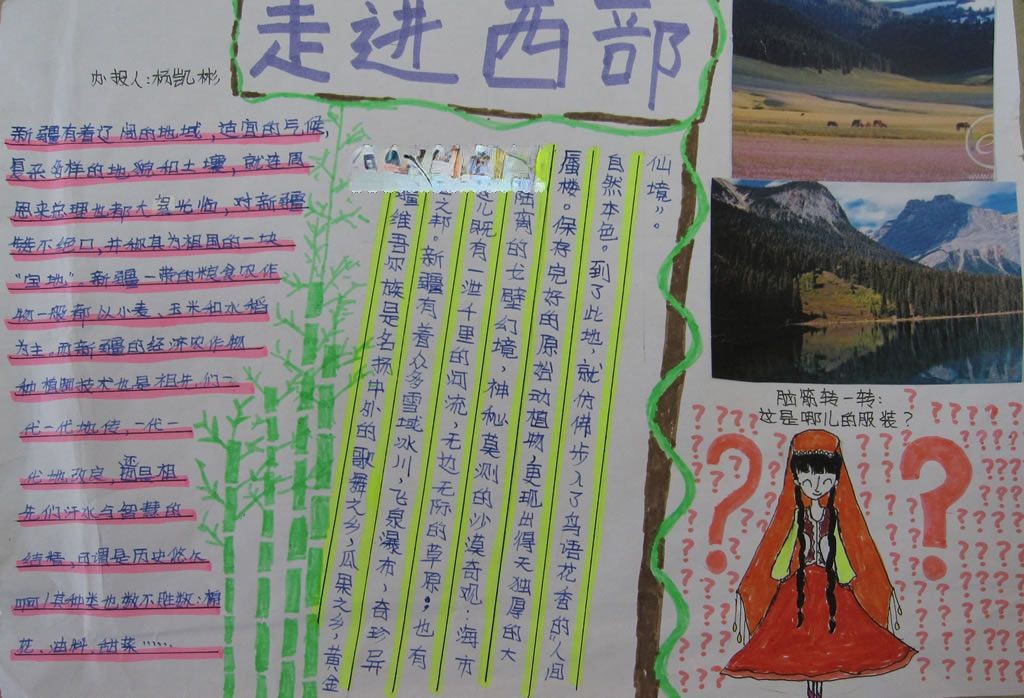 走进西部
办报人:杨凯彬
新疆有着辽阔的地域,适宜的气候,
复杂多样的地貌和土壤,就连周
恩来总理也都大驾光临,对新疆
赞不绝口,并称其为祖国的一块
“宝地”。新疆一带的粮食农作
物一般都以小麦、玉米和水稻
为主,而新疆的经济农作物
种植期技术也是祖先们一
代一代地传,一代一
代地改良,还是祖
先们汗水与智慧的
结晶,可谓是历史悠久
啊!其种类也数不胜数:棉
花、油料、甜菜……
疆维吾尔族是名扬中外的歌舞之乡,瓜果之乡,黄金
之邦。新疆有着众多雪域冰川,飞泉瀑布,奇珍异
儿既有一泄千里的河流,无边无际的草原;也有
陆离的戈壁幻境,神秘莫测的沙漠奇观…海市
蜃楼。保存完好的原始动植物更现出得天独厚的大
自然本色。到了此地,就仿佛步入了鸟语花香的“人间
仙境”。
脑筋转一转:
这是哪儿的服装?